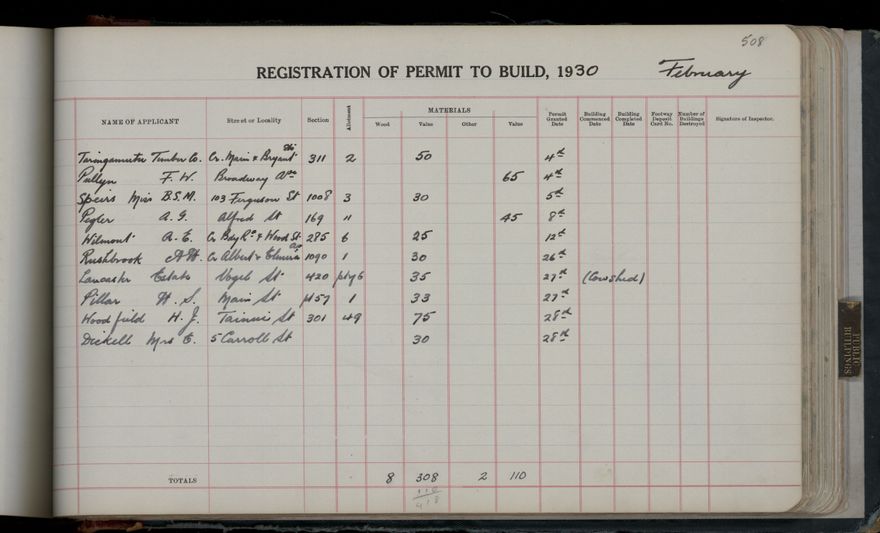 508
REGISTRATION OF PERMIT TO BUILD, 1930 February
NAME OF APPLICANT Street or Locality Section Allotment MATERIALS Wood Value Other Value Permit Granted Date Building Commenced Date Building Completed Date Footway Deposit Card No. Number of Buildings Destroyed Signature of Inspector.
Taringamutu Timber Co. Cr. Main & Bryant Sts 311 2 50 4th
Pullyn F. W. Broadway Ave 65 4th
Speirs Miss B.S.M. 103 Ferguson St 1008 3 30 5th
Pegler A. G. Alfred St 169 " 45 8th
Wilmont A. E. Cr Bdy Rd & Wood St 285 6 25 12th
Rushbrook A.H. Cr Albert & Ave 1090 1 30 26th
Lancaster Estate Vogel St 420 pty6 35 27th (Cowshed)
Pillar H. S. Main St pt57 1 33 27th
Woodfield H. J. Tainui St 301 49 75 28th
Dickell Mrs E. 5 Carroll St 30 28th
TOTALS 8 308 2 110
110
418
PUBLIC BUILDINGS